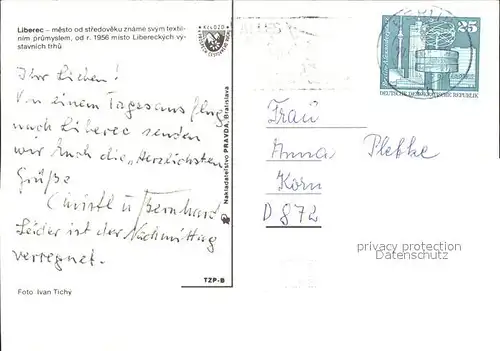 Liberec – město od středověku známé svým textil-
ním průmyslem, od r. 1956 místo Libereckých vý-
stavních trhů
Kčs 0,20
Ihr Lieben!
Von einem Tagesausflug
nach Liberec senden
wir Euch die „Herzlichsten
Grüße
Christl u. Bernhard
Leider ist der Nachmittag
verregnet.
Foto Ivan Tichý
TZP-B
Nakladatelstvo PRAVDA, Bratislava
25
DEUTSCHE DEMOKRATISCHE REPUBLIK
Frau
Anna Plefke
Korn
D 872
privacy protection
Datenschutz